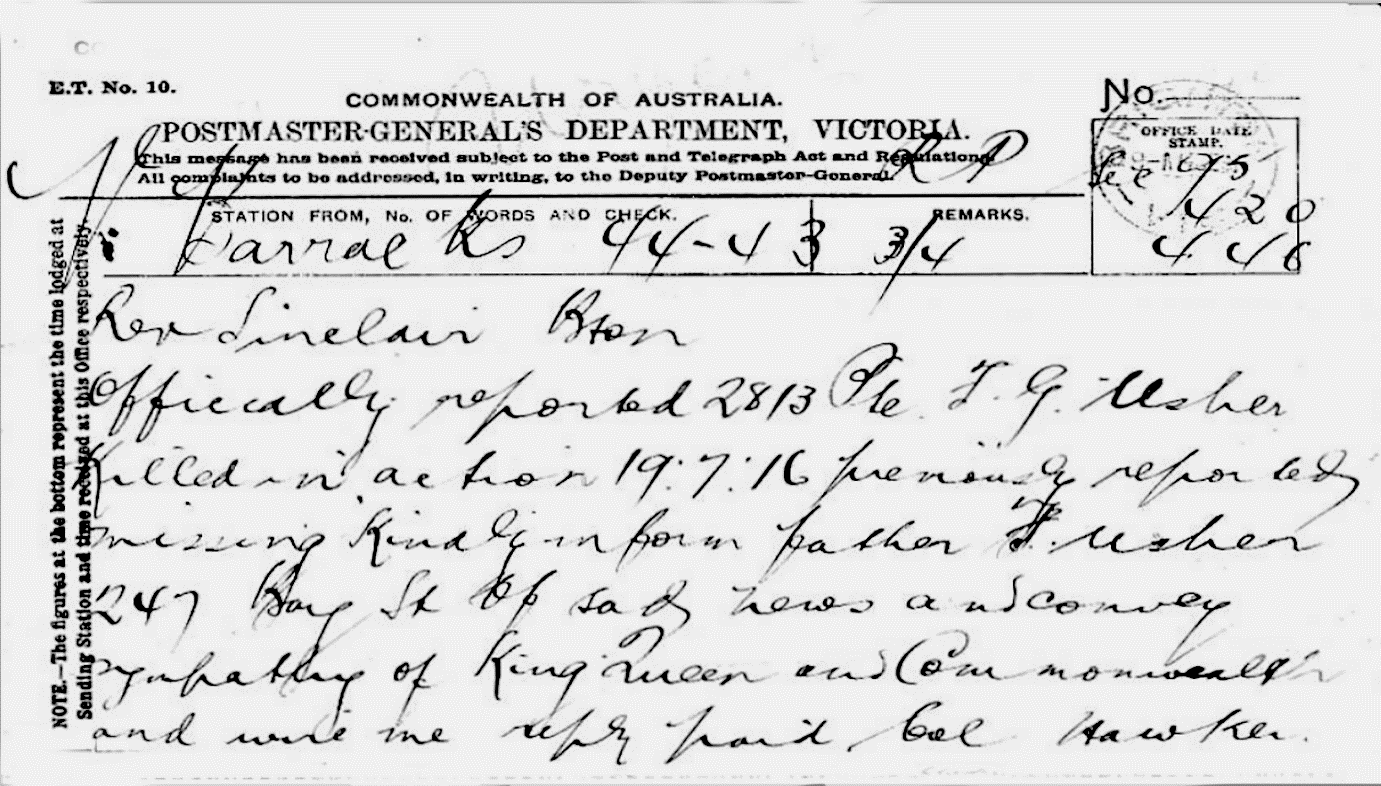 E.T. No. 10.
COMMONWEALTH OF AUSTRALIA.
POSTMASTER-GENERAL'S DEPARTMENT, VICTORIA.
This message has been received subject to the Post and Telegraph Act and Regulations.
All complaints to be addressed, in writing, to the Deputy Postmaster-General.
R P
No.
OFFICE DATE
STAMP.
4 20
4 46
STATION FROM, No. OF WORDS AND CHECK.
REMARKS.
Barracks 44-43 3/4
Rev Sinclair Bton
Officially reported 2813 Pte. F. G. Usher
Killed in action 19.7.16 previously reported
missing Kindly inform father Usher
247 Bay St Bp sad news and convey
sympathy of King Queen and Commonwealth
and wire me reply paid. Col Hawker.
NOTE.—The figures at the bottom represent the time lodged at
Sending Station and time received at this Office respectively.